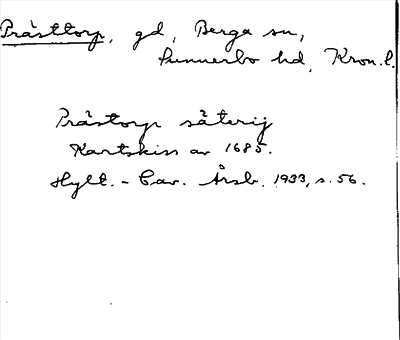 Prästtorp, gd, Berga sn,
Sunnerbo hd, Kron. l.
Prästorp säterij
Kartskiss av 1685.
Hylt.-Cav. Årsb. 1933, s. 56.